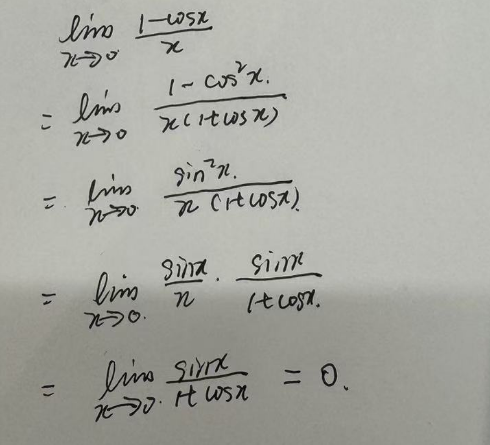 lim x→0 (1-cosx)/x
= lim x→0 (1-cos²x.)/(x(1+cosx))
= lim x→0. (sin²x.)/(x(1+cosx).)
= lim x→0. (sinx/x) · (sinx/(1+cosx.))
= lim x→0. (sinx/(1+cosx)) = 0.